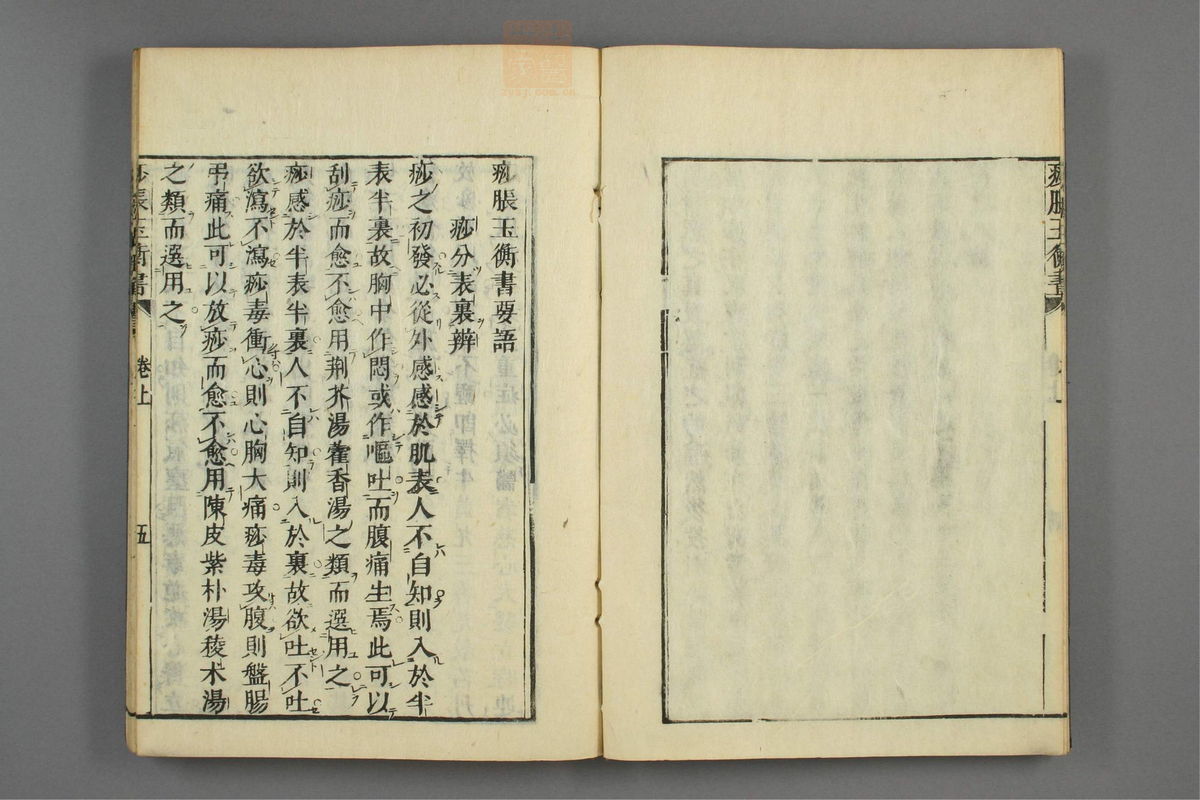 痧脹玉衡書
痧脹玉衡書要語
痧分表裏辨
痧之初發必從外感感於肌表人不自知則入於半
表半裏故胸中作悶或作嘔吐而腹痛生焉此可以
刮痧而愈不愈用荆芥湯藿香湯之類而選用之
痧感於半表半裏人不自知則入於裏故欲吐不吐
欲瀉不瀉痧毒衝心則心胸大痛痧毒攻腹則盤腸
弔痛此可以放痧而愈不愈用陳皮紫朴湯稜朮湯
之類而選用之
痧脹玉衡書 卷上 五